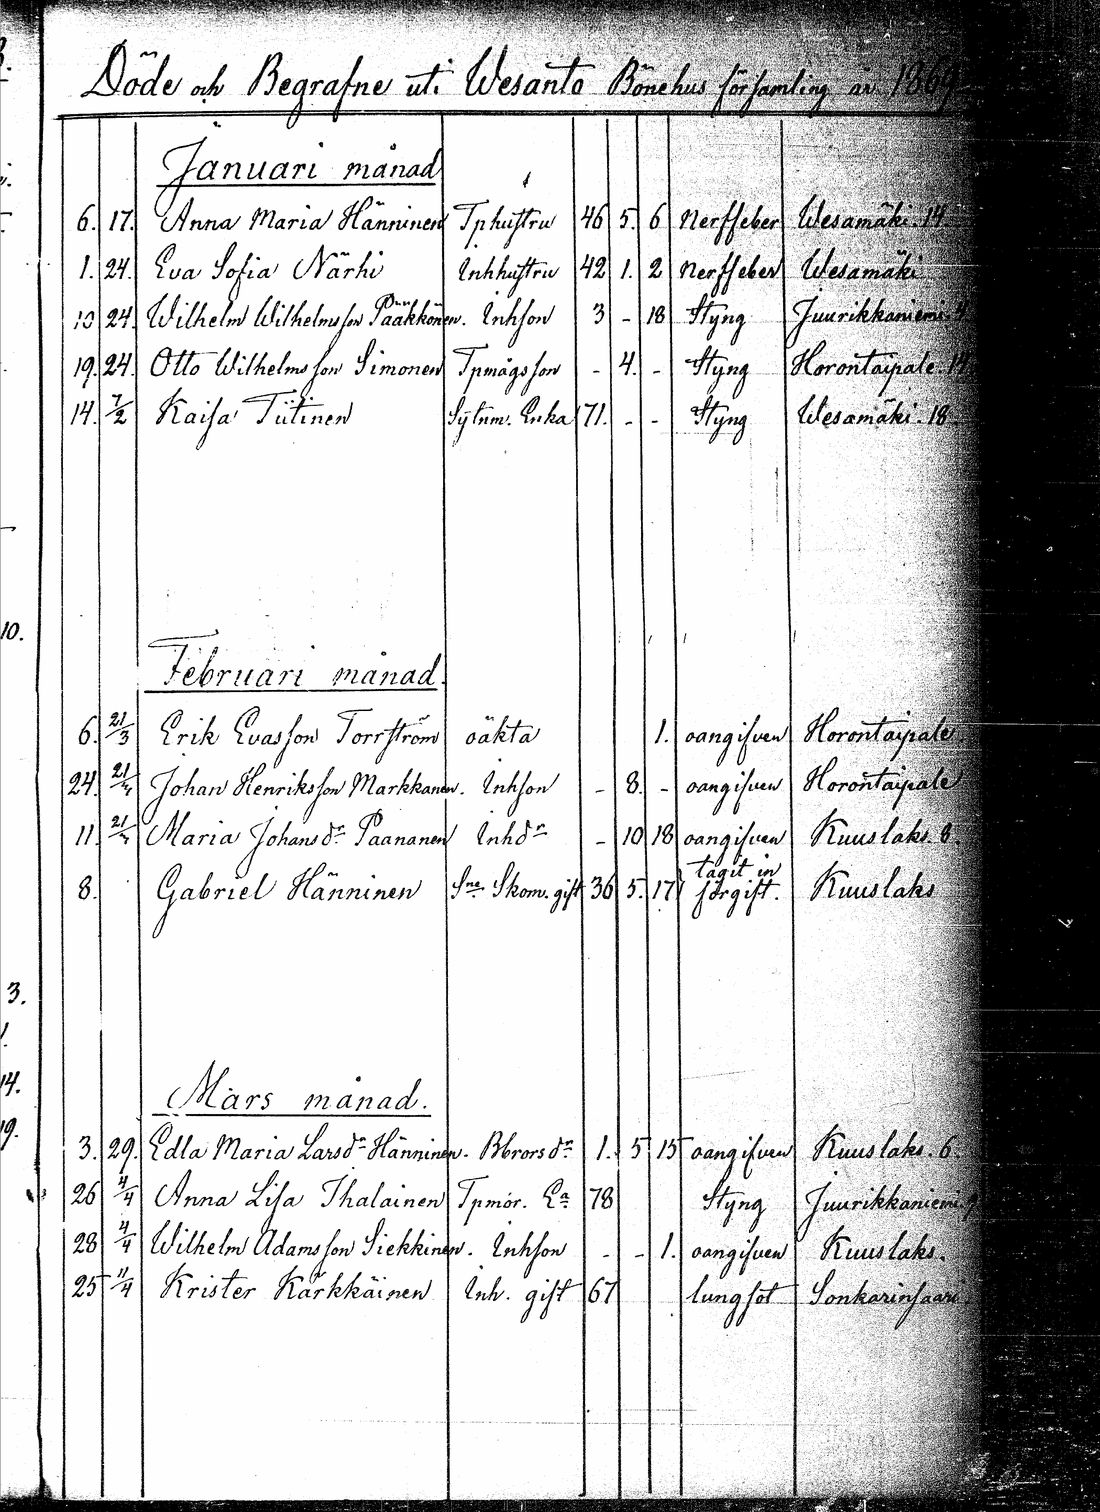 Döde och Begrafne uti Wesanto Bönehus församling år 1869
Januari månad
6. 17. Anna Maria Hänninen Tphustru 46 5. 6 Nerffeber Wesamäki. 14
1. 24. Eva Sofia Närhi Inhhustru 42 1. 2 Nerffeber Wesamäki
10 24. Wilhelm Wilhelmsson Pääkkönen. Inhson 3 - 18 Styng Juurikkaniemi.
19. 24. Otto Wilhelmsson Simonen Tpmågsson - 4. - Styng Horontaipale. 14
14. 7/2 Kaisa Tiitinen Sytnm. Enka 71. - - Styng Wesamäki. 18.
Februari månad.
6. 21/3 Erik Evasson Torrström oäkta 1. oangifven Horontaipale.
24. 21/ Johan Henriksson Markkanen. Inhson - 8. - oangifven Horontaipale
11. 21/ Maria Johansdr Paananen Inhdr - 10 18 oangifven Kuuslaks. 8.
8. Gabriel Hänninen Sne Skom. gift 36 5. 17 tagit in förgift. Kuuslaks
Mars månad.
3. 29. Edla Maria Larsdr Hänninen. Bbrorsdr 1. 5 15 oangifven Kuuslaks. 6.
26 4/4 Anna Lisa Ihalainen Tpmor. Ea 78 Styng Juurikkaniemi.
28 4/4 Wilhelm Adamsson Siekkinen. Inhson - - 1. oangifven Kuuslaks.
25 11/4 Krister Kärkkäinen Inh. gift 67 lungsot Sonkarinsaari
10.
3.
14.
19.